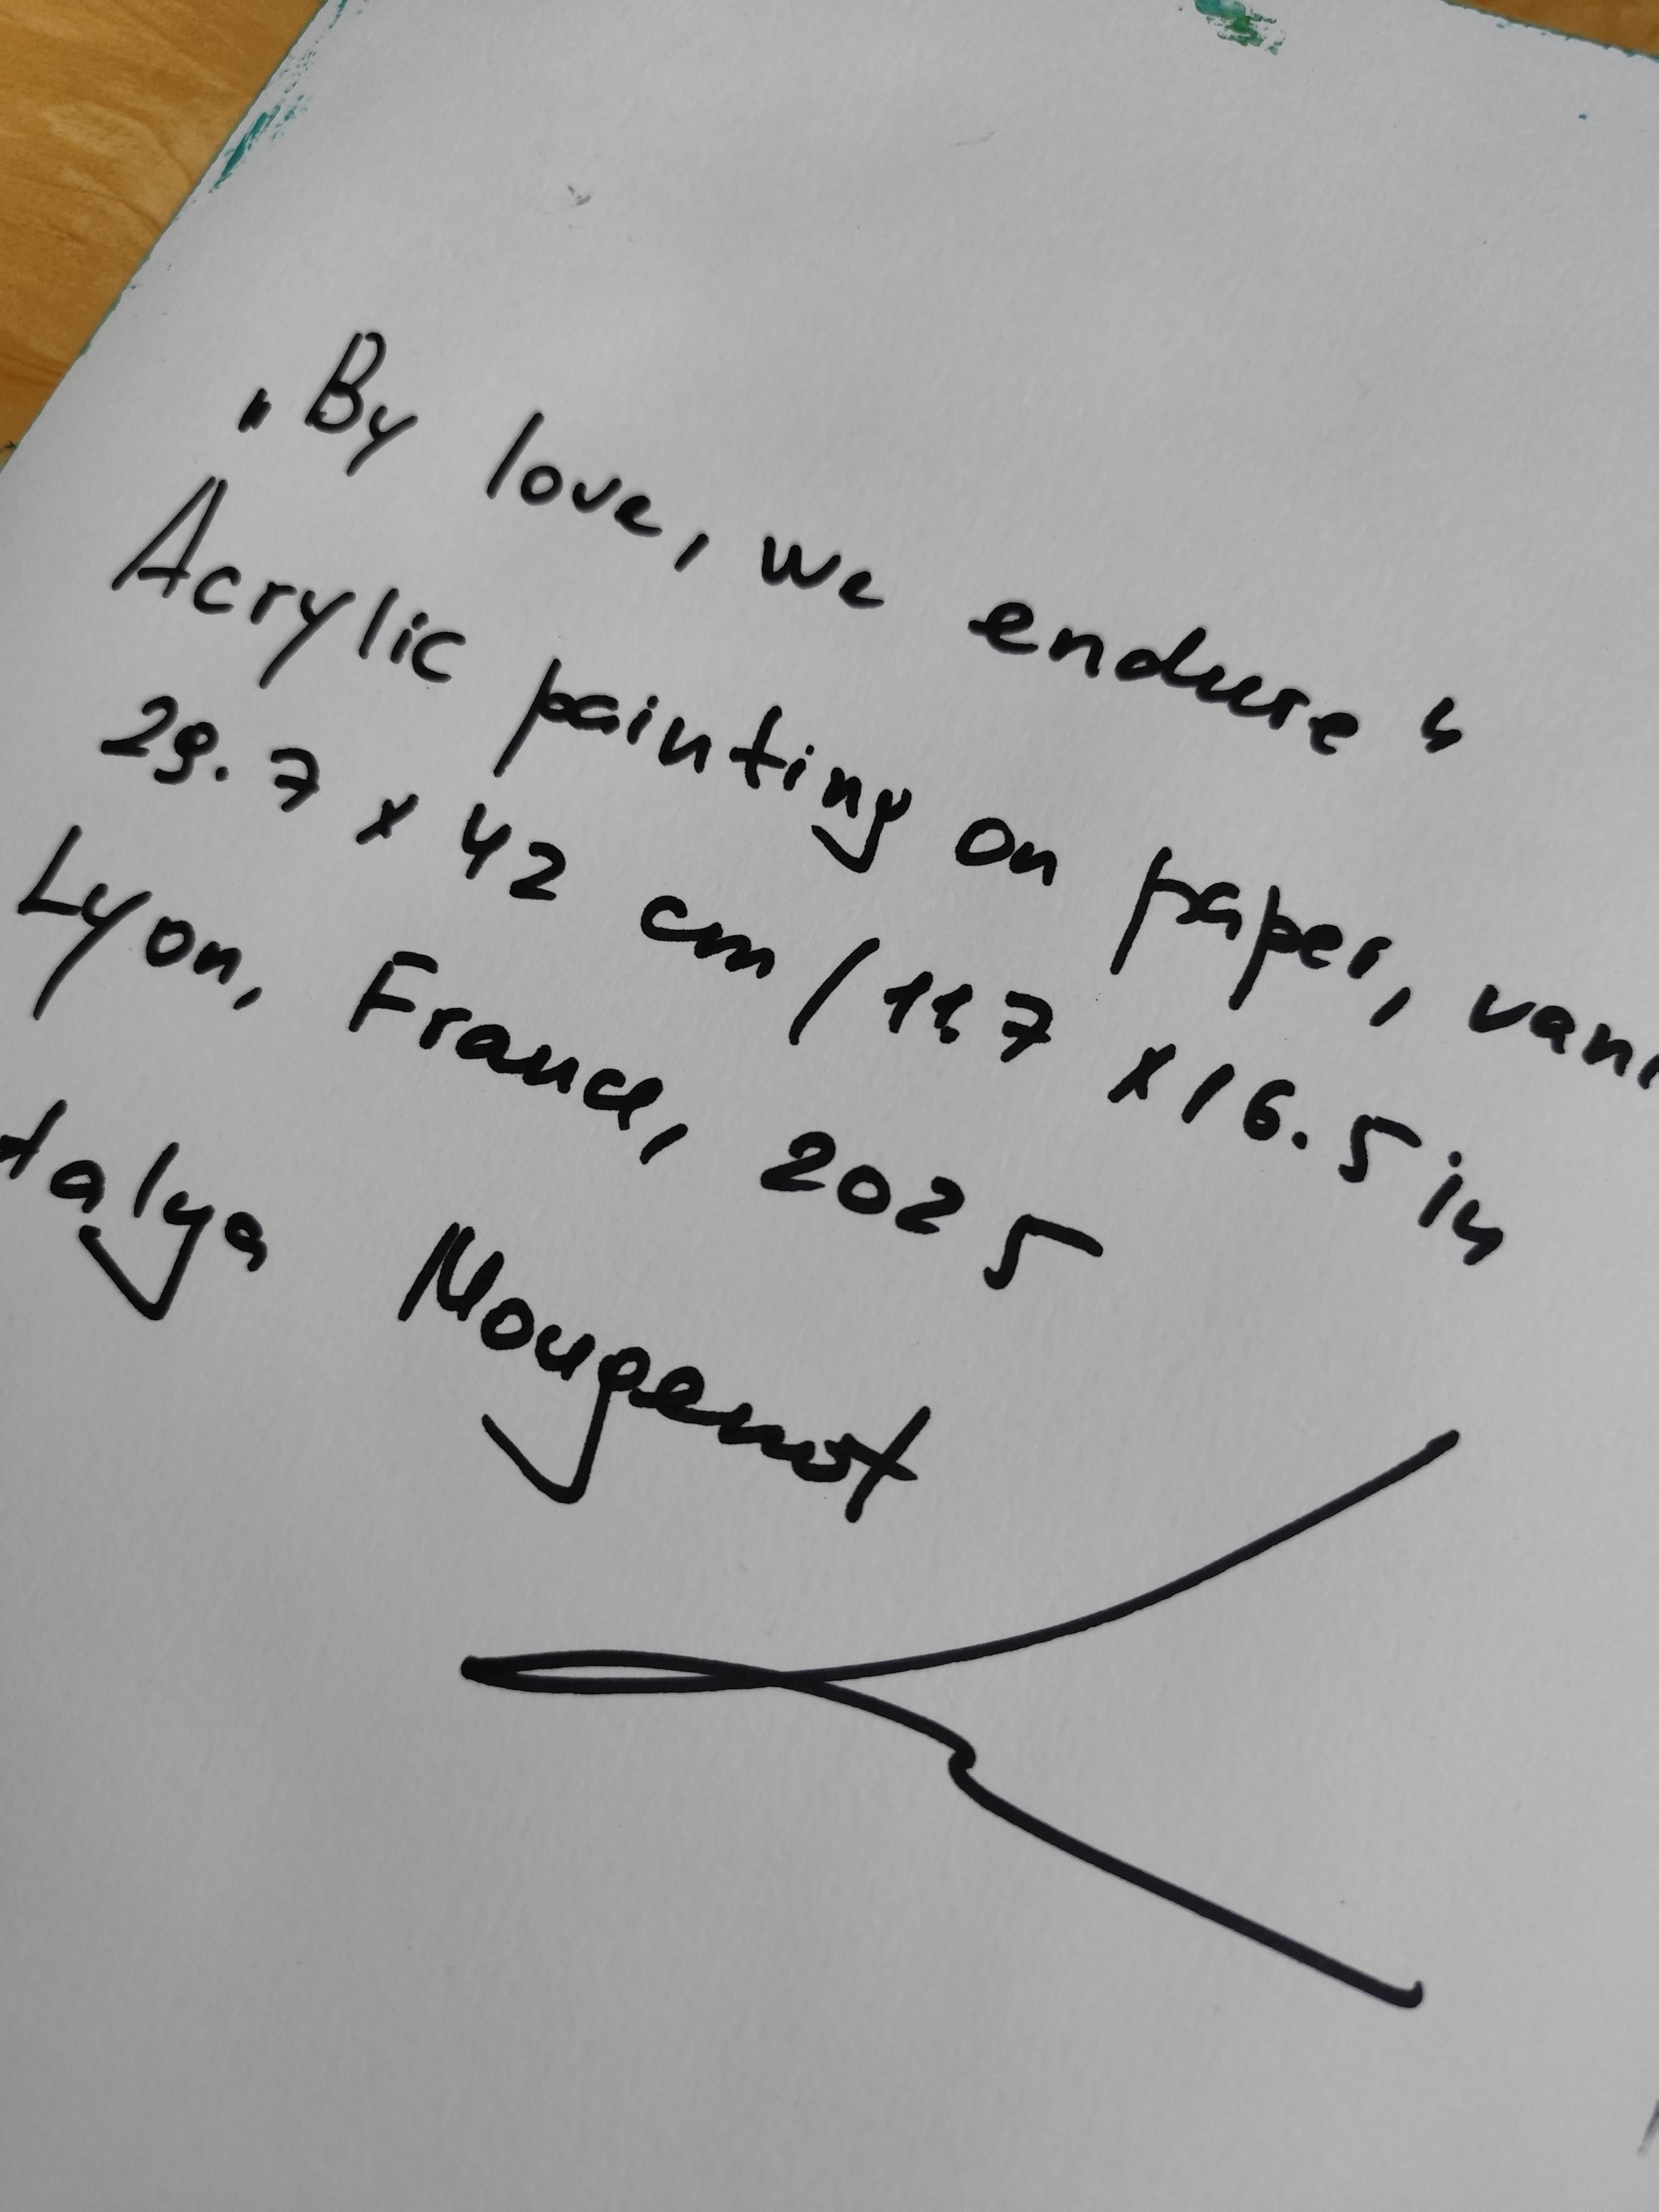 „By love, we endure“
Acrylic painting on paper,
29.7 x 42 cm / 11.7 x 16.5 in
Lyon, France, 2025
Mougenot